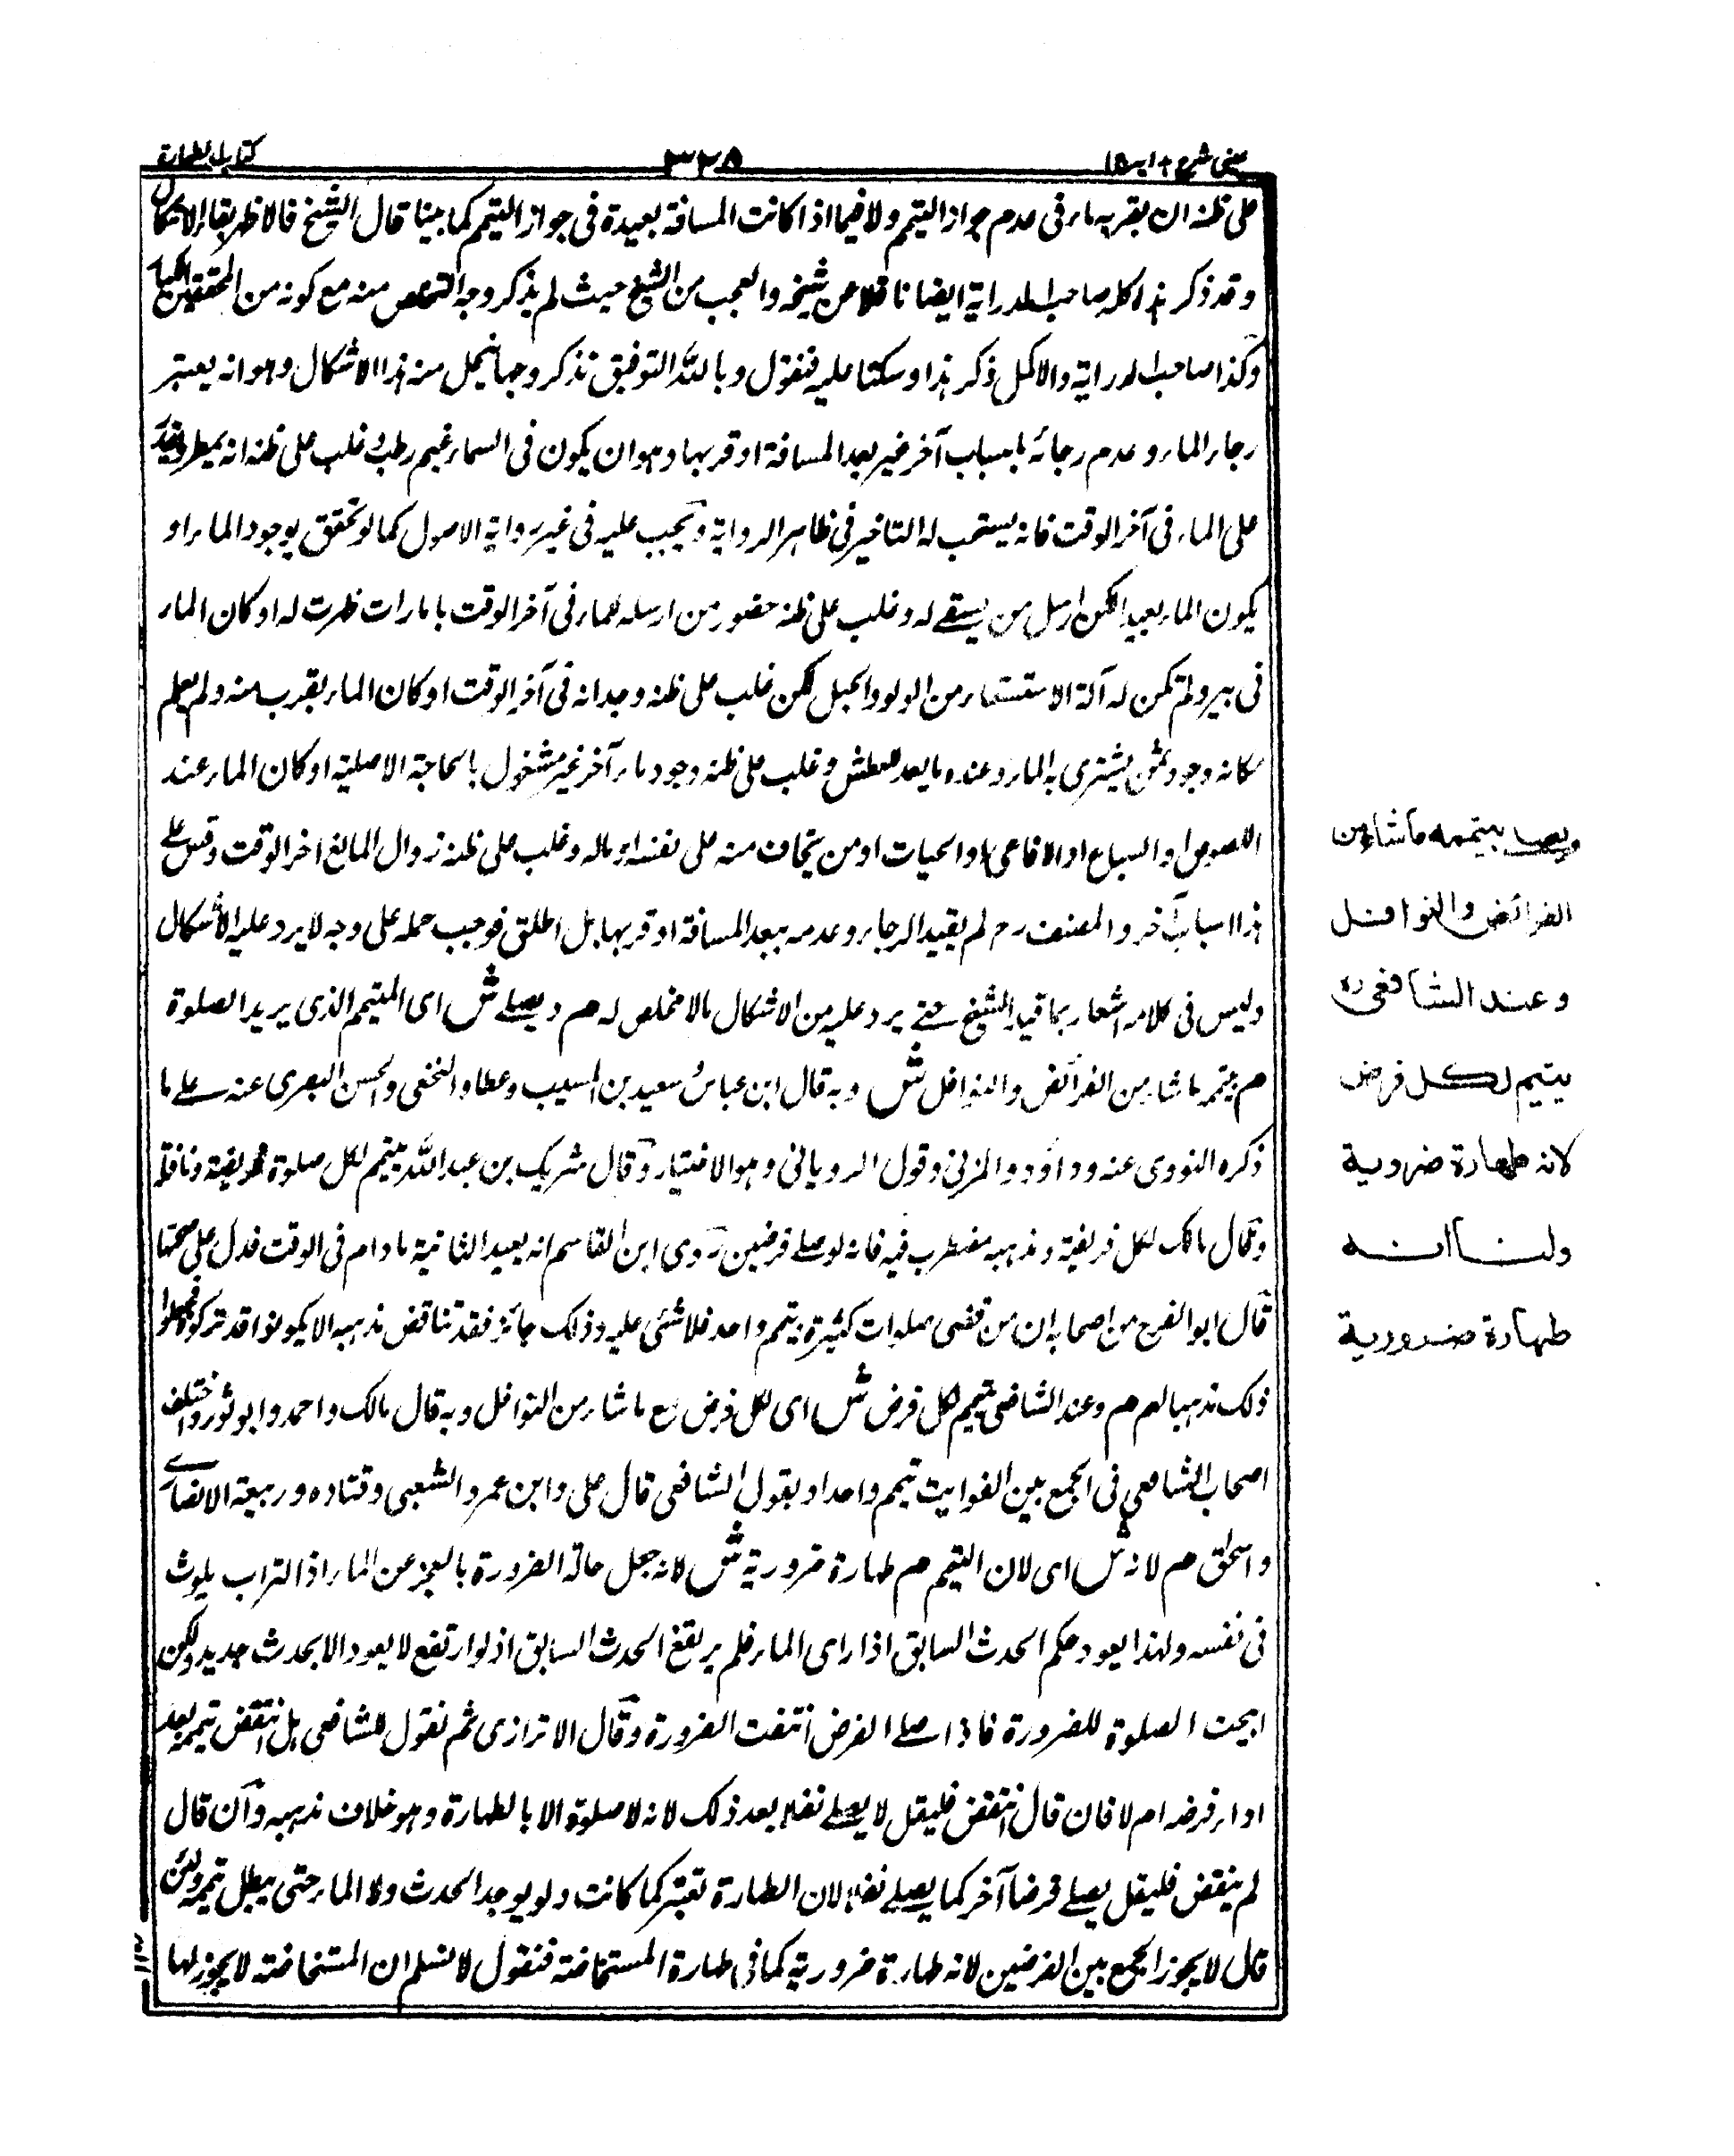 عینی شرح ہدایہ ج ۱
۳۲۸
کتاب الطہارۃ
علی ظنہ ان بقربہ ماء فی عدم جواز التیمم ولا فیما اذا کانت المسافۃ بعیدۃ فی جواز التیمم کما بینا قال الشیخ فالاظہر بقاء الاشکال
وقد ذکر ہذا کلہ صاحب الدرایۃ ایضا ناقلا عن شیخہ والعجب من الشیخ حیث لم یذکر وجہ التمحص منہ مع کونہ من المحققین الکبار
وکذا صاحب الدرایۃ والاکمل ذکر ہذا وسکتا علیہ فنقول وباللہ التوفیق نذکر وجہا ینحل منہ ہذا الاشکال وہو انہ یعتبر
رجاء الماء وعدم رجائہ باسباب آخر غیر بعد المسافۃ او قربہا وہو ان یکون فی السماء غیم رطب وغلب علی ظنہ انہ یمطر ویقدر
علی الماء فی آخر الوقت فانہ یستحب لہ التاخیر فی ظاہر الروایۃ ویجب علیہ فی غیر روایۃ الاصول کما لو تحقق بوجود الماء او
یکون الماء بعیدا لکن ارسل من یستقے لہ وغلب علی ظنہ حضور من ارسلہ للماء فی آخر الوقت بامارات ظہرت لہ او کان الماء
فی بیر ولم تکن لہ آلۃ الاستسقاء من الدلو والحبل لکن غلب علی ظنہ وجدانہ فی آخر الوقت او کان الماء بقرب منہ ولم یعلم
مکانہ وجود ثمن یشتری بہ الماء وعندہ ما یعد للعطش وغلب علی ظنہ وجود ماء آخر غیر مشغول بالحاجۃ الاصلیۃ او کان الماء عند
اللصوص او السباع او الافاعی او الحیات او من یخاف منہ علی نفسہ او مالہ وغلب علی ظنہ زوال المانع اخر الوقت وقس علے
ہذا اسباب آخر والمصنف رح لم یقید الرجاء وعدمہ ببعد المسافۃ او قربہا بل اطلق فوجب حملہ علی وجہ لا یرد علیہ الاشکال
ولیس فی کلامہ اشعار بما قیدہ الشیخ حتے یرد علیہ من الاشکال مالا مخلص لہ م ویصلے ش ای المتیمم الذی یرید الصلوۃ
م بتیممہ ماشاء من الفرائض والنوافل ش وبہ قال ابن عباس وسعید بن المسیب وعطاء والنخعی والحسن البصری عنہ علے ما
ذکرہ النووی عنہ وداؤد والمزنی وقول الرویانی وہو الاختیار وقال شریک بن عبد اللہ یتیمم لکل صلوۃ فریضۃ ونافلۃ
وقال مالک لکل فریضۃ ومذہبہ مضطرب فیہ فانہ لو صلے فرضین روی ابن القاسم انہ یعید الثانیۃ مادام فی الوقت فدل علی صحتہا
قال ابو الفرج من اصحابہ ان من قضی صلوات کثیرۃ بتیمم واحد فلا شئی علیہ وذلک جائز فقد تناقض مذہبہ الا یکونوا قد ترکوا
ذلک مذہبا لہم م وعند الشافعی یتیمم لکل فرض ش ای لکل فرض مع ماشاء من النوافل وبہ قال مالک واحمد وابو ثور واختلف
اصحاب الشافعی فی الجمع بین الفوایت بتیمم واحد وبقول الشافعی قال علی وابن عمر والشعبی وقتادہ وربیعۃ الانصاری
واسحق م لانہ ش ای لان التیمم م طہارۃ ضروریۃ ش لانہ جعل حالۃ الضرورۃ بالعجز عن الماء اذ التراب یلوث
فی نفسہ ولہذا یعود حکم الحدث السابق اذا رای الماء فلم یرتفع الحدث السابق اذ لو ارتفع لا یعود الا بحدث جدید ولکن
ابیحت الصلوۃ للضرورۃ فاذا صلے الفرض انتفت الضرورۃ وقال الاترازی ثم نقول للشافعی ہل انتقض تیممہ بعد
اداء فرضہ ام لا فان قال انتقض فلیقل لا یصلے نفلا بعد ذلک لانہ لا صلوۃ الا بالطہارۃ وہو خلاف مذہبہ وان قال
لم ینتقض فلیقل یصلے فرضا آخر کما یصلے نفلا لان الطہارۃ تعتبر کما کانت ولو یوجد الحدث ولا الماء حتی یبطل تیممہ ولئن
قال لا یجوز الجمع بین الفرضین لانہ طہارۃ ضروریۃ کما فی طہارۃ المستحاضۃ فنقول لا نسلم ان المستحاضۃ لا یجوز لہا
ویصلے بتیممہ ماشاء من
الفرائض والنوافل
وعند الشافعی رہ
یتیم لکل فرض
لانہ طہارۃ ضروریۃ
ولنا انہ
طہارۃ ضروریۃ